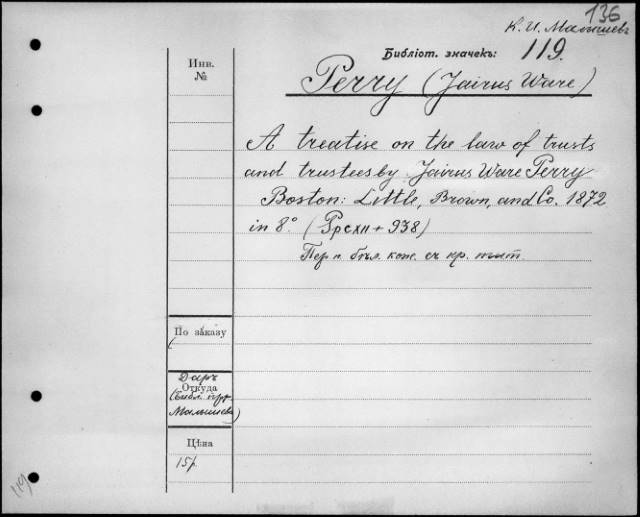 136
К. И. Малышевъ
Библіот. значекъ: 119.
Инв.
№
Perry (Jairus Ware)
A treatise on the law of trusts
and trustees by Jairus Ware Perry
Boston: Little, Brown, and Co. 1872
in 8.° ( + 938)
Пер. п. бѣл. кож. съ кр.
По заказу
Даръ
Откуда
(библ. прф.
Малышева)
Цѣна
15р.
119